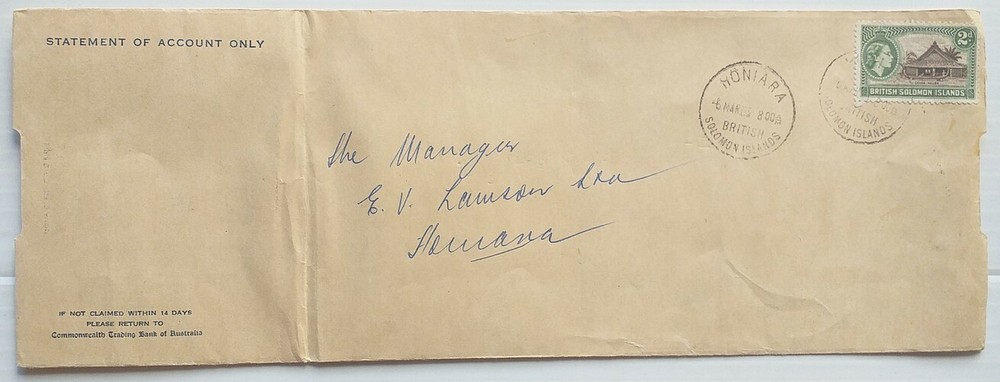 STATEMENT OF ACCOUNT ONLY
2d
BRITISH SOLOMON ISLANDS
HONIARA
-6 MAR 8 00A
BRITISH
SOLOMON ISLANDS
BRITISH
SOLOMON ISLANDS
The Manager
E. V. Lawson Ltd
Honiara
IF NOT CLAIMED WITHIN 14 DAYS
PLEASE RETURN TO
Commonwealth Trading Bank of Australia